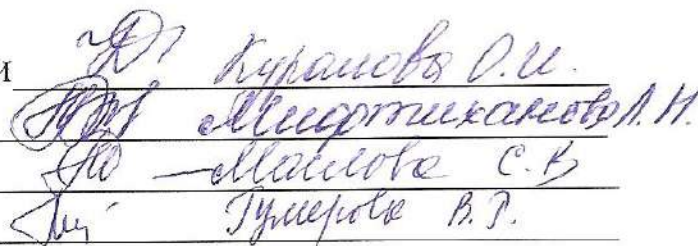 и Курамова О.И.
Мифтиханова Л.Н.
Маилова С.В
Гумерова В.Р.